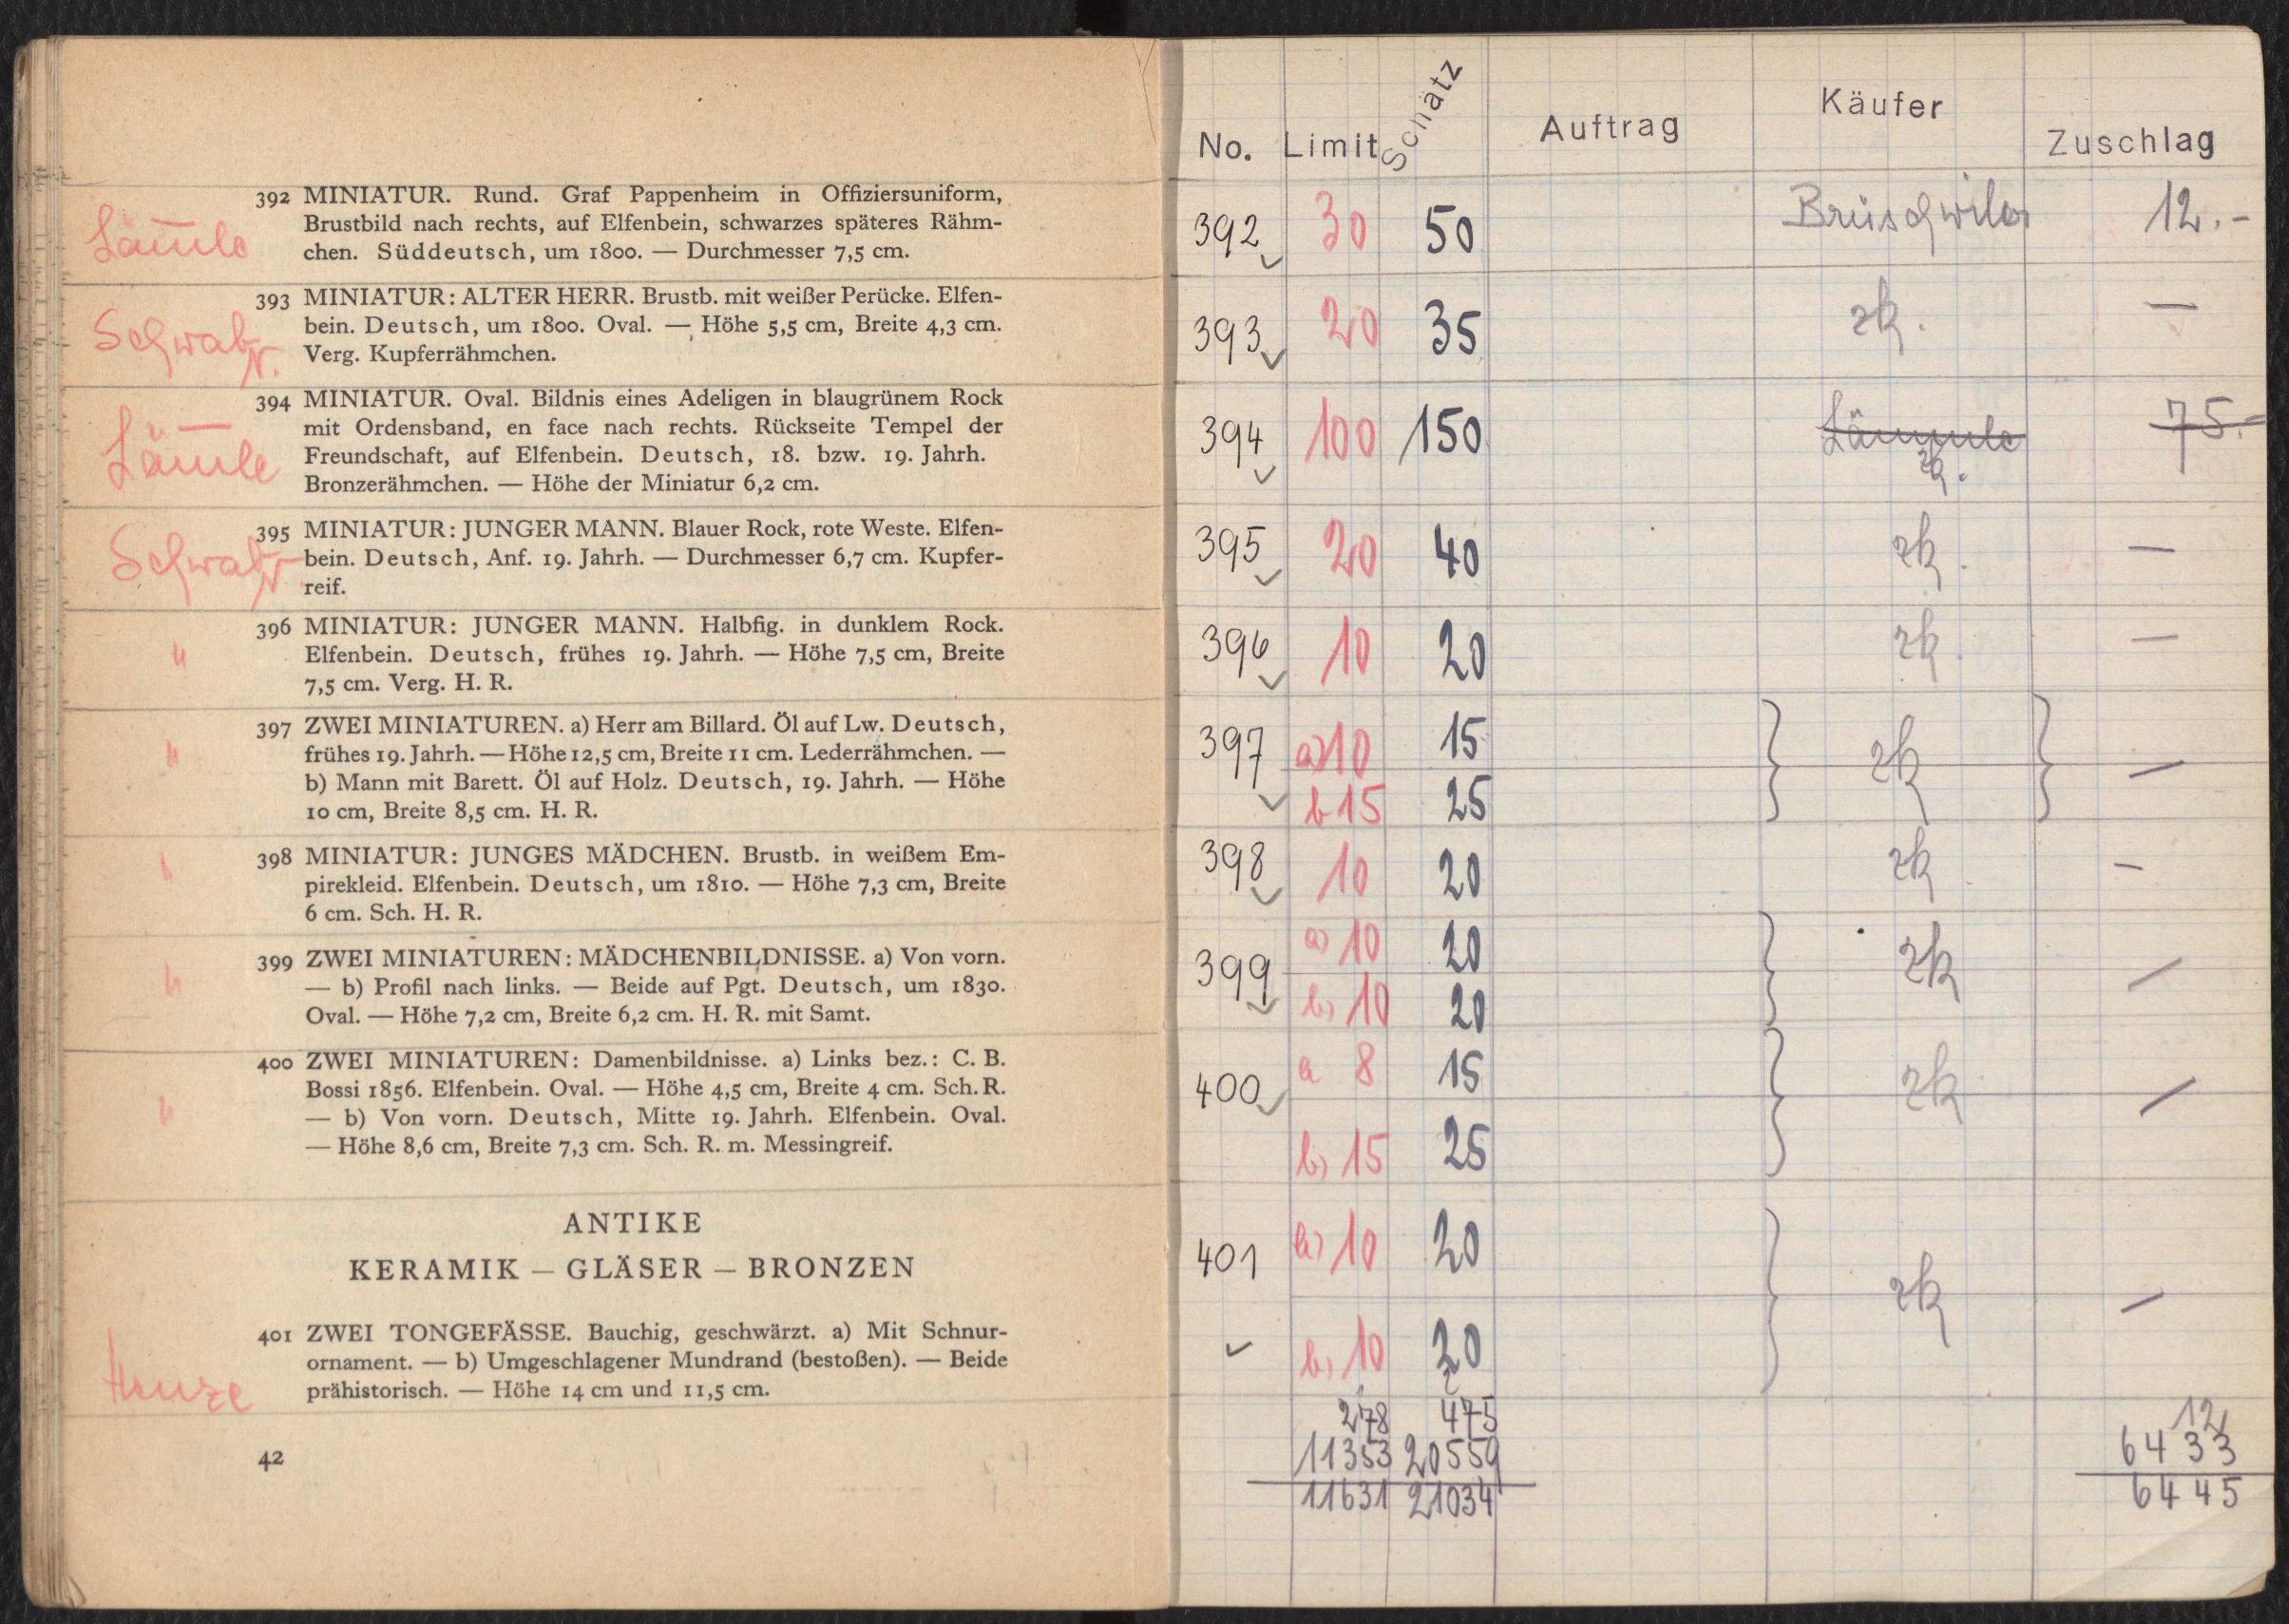 392 MINIATUR. Rund. Graf Pappenheim in Offiziersuniform,
Brustbild nach rechts, auf Elfenbein, schwarzes späteres Rähm-
chen. Süddeutsch, um 1800. — Durchmesser 7,5 cm.
Läm̅le
393 MINIATUR: ALTER HERR. Brustb. mit weißer Perücke. Elfen-
bein. Deutsch, um 1800. Oval. — Höhe 5,5 cm, Breite 4,3 cm.
Verg. Kupferrähmchen.
394 MINIATUR. Oval. Bildnis eines Adeligen in blaugrünem Rock
mit Ordensband, en face nach rechts. Rückseite Tempel der
Freundschaft, auf Elfenbein. Deutsch, 18. bzw. 19. Jahrh.
Bronzerähmchen. — Höhe der Miniatur 6,2 cm.
Läm̅le
395 MINIATUR: JUNGER MANN. Blauer Rock, rote Weste. Elfen-
bein. Deutsch, Anf. 19. Jahrh. — Durchmesser 6,7 cm. Kupfer-
reif.
396 MINIATUR: JUNGER MANN. Halbfig. in dunklem Rock.
Elfenbein. Deutsch, frühes 19. Jahrh. — Höhe 7,5 cm, Breite
7,5 cm. Verg. H. R.
"
397 ZWEI MINIATUREN. a) Herr am Billard. Öl auf Lw. Deutsch,
frühes 19. Jahrh. — Höhe 12,5 cm, Breite 11 cm. Lederrähmchen. —
b) Mann mit Barett. Öl auf Holz. Deutsch, 19. Jahrh. — Höhe
10 cm, Breite 8,5 cm. H. R.
"
398 MINIATUR: JUNGES MÄDCHEN. Brustb. in weißem Em-
pirekleid. Elfenbein. Deutsch, um 1810. — Höhe 7,3 cm, Breite
6 cm. Sch. H. R.
"
399 ZWEI MINIATUREN: MÄDCHENBILDNISSE. a) Von vorn.
— b) Profil nach links. — Beide auf Pgt. Deutsch, um 1830.
Oval. — Höhe 7,2 cm, Breite 6,2 cm. H. R. mit Samt.
"
400 ZWEI MINIATUREN: Damenbildnisse. a) Links bez.: C. B.
Bossi 1856. Elfenbein. Oval. — Höhe 4,5 cm, Breite 4 cm. Sch. R.
— b) Von vorn. Deutsch, Mitte 19. Jahrh. Elfenbein. Oval.
— Höhe 8,6 cm, Breite 7,3 cm. Sch. R. m. Messingreif.
"
ANTIKE
KERAMIK — GLÄSER — BRONZEN
401 ZWEI TONGEFÄSSE. Bauchig, geschwärzt. a) Mit Schnur-
ornament. — b) Umgeschlagener Mundrand (bestoßen). — Beide
prähistorisch. — Höhe 14 cm und 11,5 cm.
42
No. Limit Schätz Auftrag Käufer Zuschlag
392 30 50 Brüschwiler 12.-
393 20 35 zk. —
394 100 150 Lämmle zk. 75.-
395 20 40 zk. —
396 10 20 zk. —
397 a) 10 15 zk —
b 15 25
398 10 20 zk —
399 a) 10 20 zk —
b) 10 20
400 a 8 15 zk —
b) 15 25
401 a) 10 20 zk —
b) 10 20
278 475 12
11353 20559 6433
11631 21034 6445